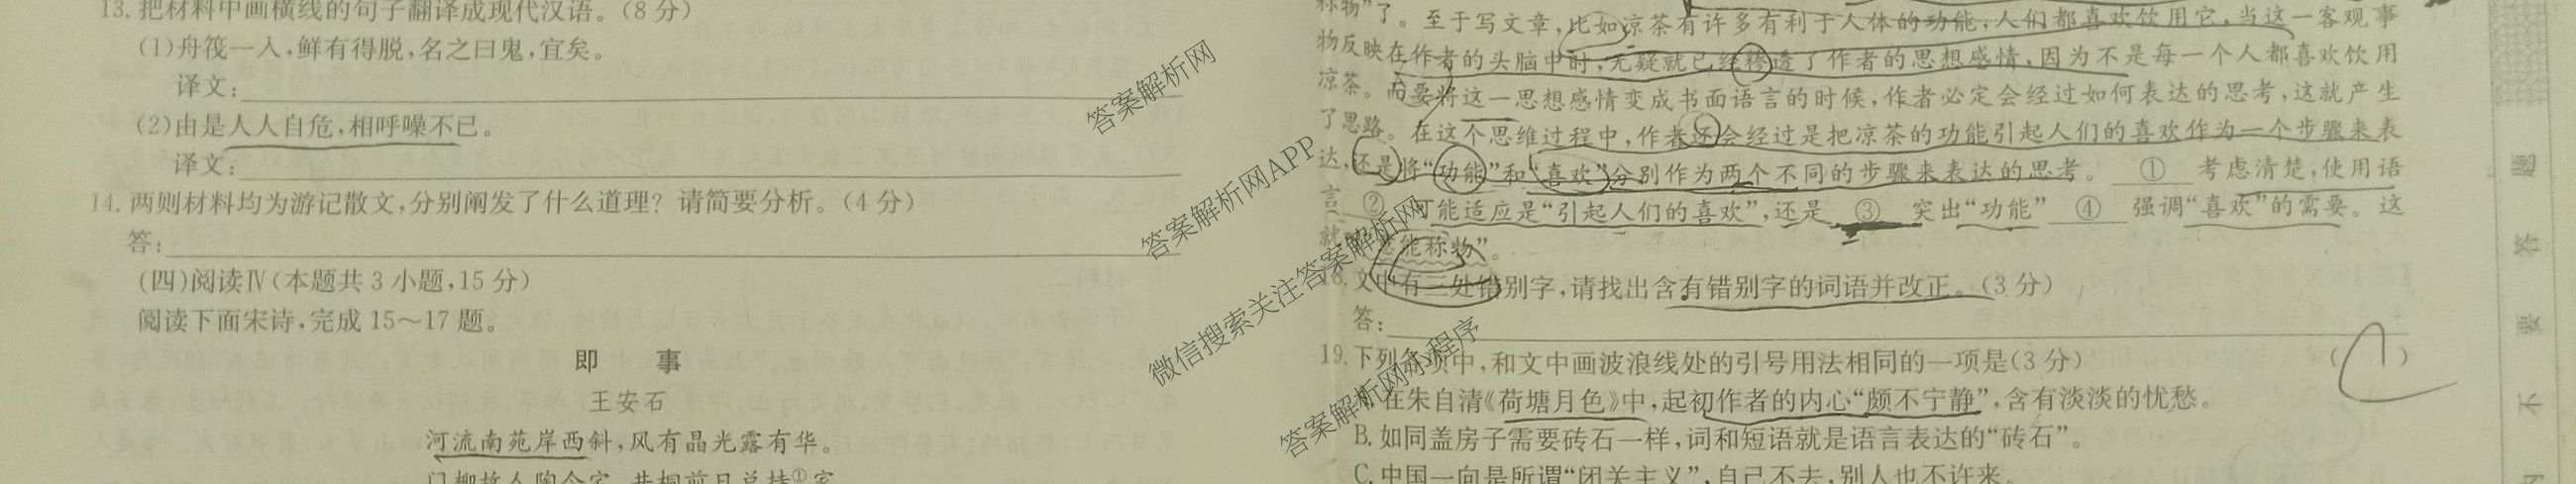 13. 把材料中画横线的句子翻译成现代汉语。(8分)
(1)舟筏一入,鲜有得脱,名之曰鬼,宜矣。
译文:
(2)由是人人自危,相呼噪不已。
译文:
14. 两则材料均为游记散文,分别阐发了什么道理? 请简要分析。(4分)
答:
(四)阅读Ⅳ(本题共3小题,15分)
阅读下面宋诗,完成15~17题。
即 事
王安石
河流南苑岸西斜,风有晶光露有华。
门柳故人陶令宅,井桐前日总持①家
称物”了。至于写文章,比如凉茶有许多有利于人体的功能,人们都喜欢饮用它,当这一客观事
物反映在作者的头脑中时,无疑就已经檫透了作者的思想感情,因为不是每一个人都喜欢饮用
凉茶。而要将这一思想感情变成书面语言的时候,作者必定会经过如何表达的思考,这就产生
了思路。在这个思维过程中,作者还会经过是把凉茶的功能引起人们的喜欢作为一个步骤来表
达,还是将“功能”和“喜欢”分别作为两个不同的步骤来表达的思考。 ① 考虑清楚,使用语
言 ② 可能适应是“引起人们的喜欢”,还是 ③ 突出“功能” ④ 强调“喜欢”的需要。这
就 能称物”。
18. 文中有三处错别字,请找出含有错别字的词语并改正。(3分)
答:
19. 下列各项中,和文中画波浪线处的引号用法相同的一项是(3分) ( )
A. 在朱自清《荷塘月色》中,起初作者的内心“颇不宁静”,含有淡淡的忧愁。
B. 如同盖房子需要砖石一样,词和短语就是语言表达的“砖石”。
C. 中国一向是所谓“闭关主义”,自己不去,别人也不许来。
题
答
要
不
内
答案解析网
答案解析网APP
微信搜索关注答案解析网
答案解析网小程序